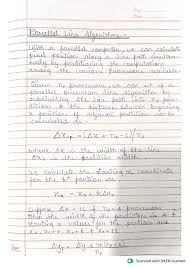 Parallel Line Algorithm -
With a parallel computer, we can calculate
pixel position along a line path simultaneously
by partitioning the computations
among the various processors available.
Given np processors, we can set up a
parallel Bresenham line algorithm by
subdividing the line path into np
partitions
calculated as -
Δxp = (Δx + np - 1) / np
where Δx is the width of the line
Δxp is the partition width.
We calculate the starting x coordinate
for the kth partition as
xk = x0 + kΔxp
Suppose Δx = 15 & np = 4 processors
then the width of the partitions is 4 &
starting x values for the partition are
x0, x0+4, x0+8 & x0+12
Δyp =
Scanned with OKEN Scanner